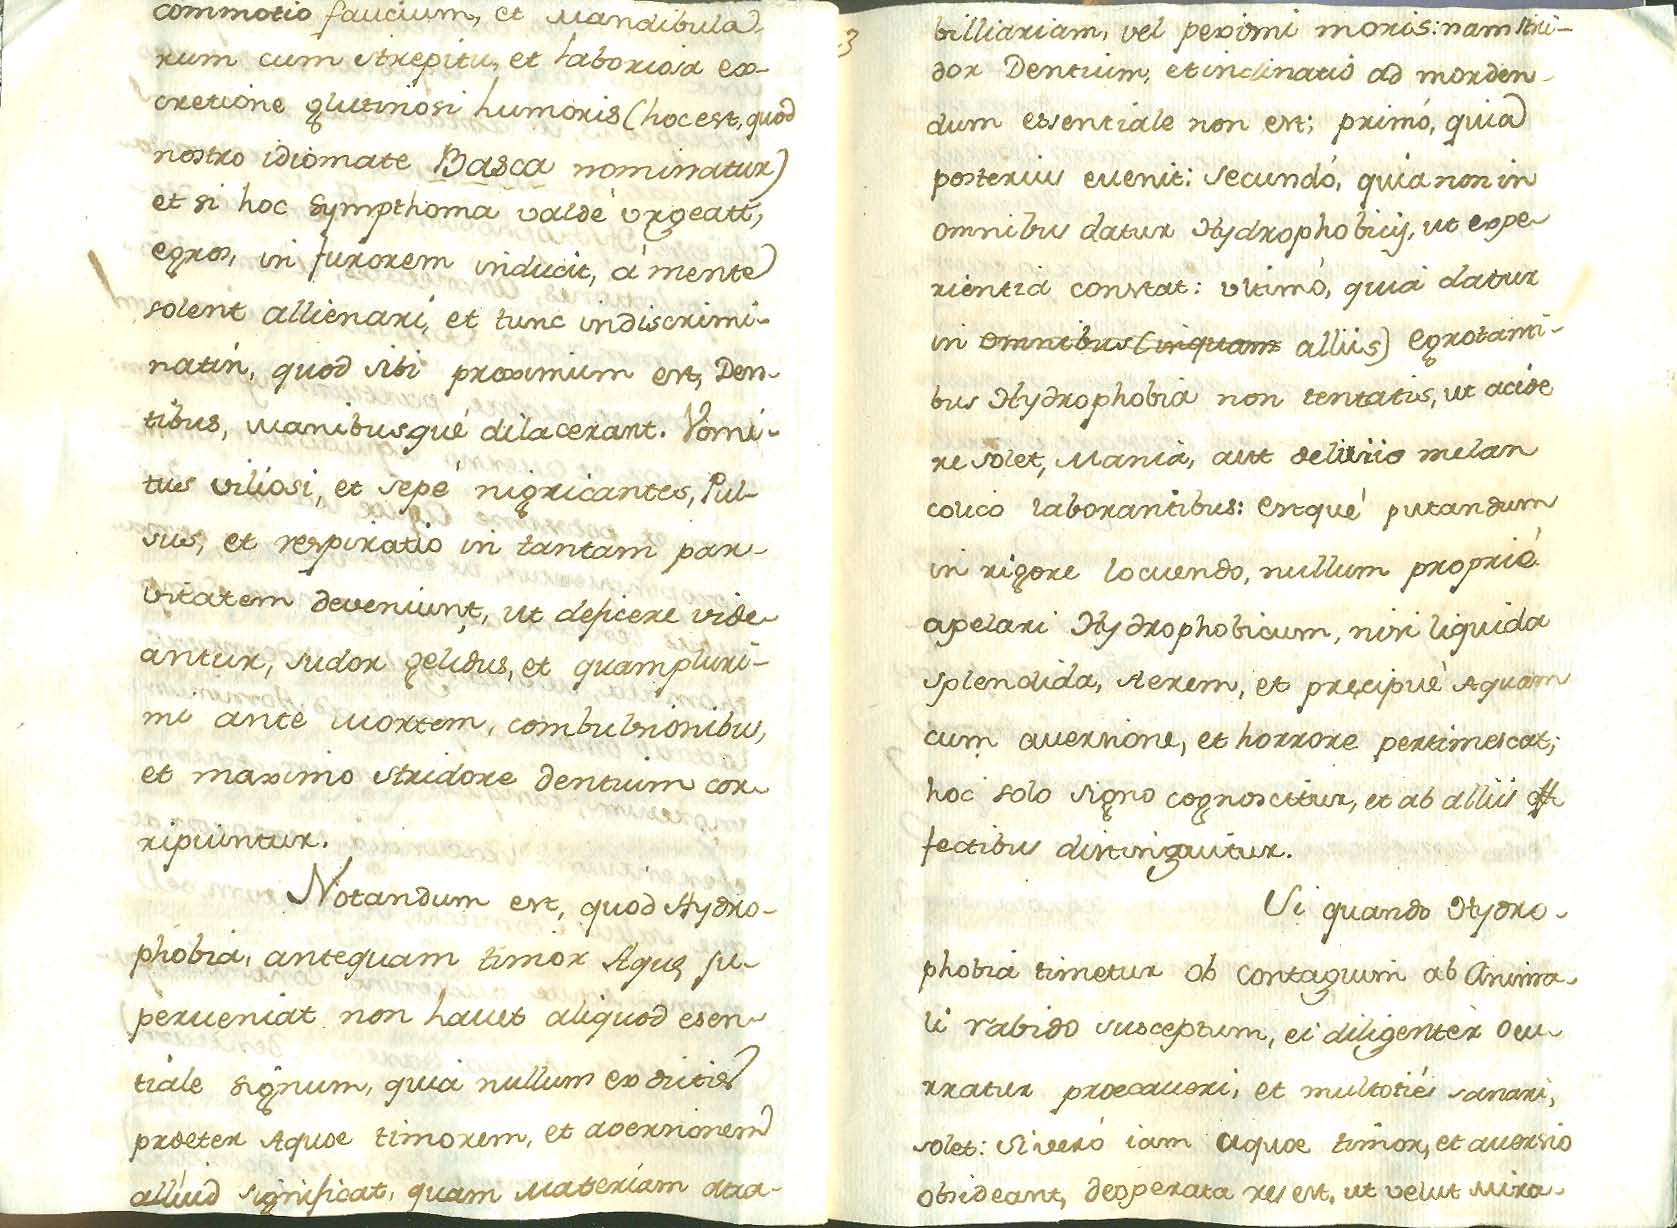 commotio faucium, et Mandibula-
rum cum strepitu, et laboriosa ex-
cretione glutinosi humoris (hoc est, quod
nostro idiomate Basca nominatur)
et si hoc Sympthoma valdè vrgeatt,
egros, in furorem inducit, à mente
solent allienari, et tunc indiscrimi-
natin, quod sibi proximum est, Den-
tibus, Manibusquè dilacerant. Vomi-
tus viliosi, et sepè nigricantes, Pul-
sus, et respiratio in tantam par-
vitatem deveniunt, ut deficere vide-
antur, sudor gelidus, et quampluri-
mi ante Mortem, combulsionibus,
et maximo stridore dentium cor-
ripiuntur.
Notandum est, quod Hydro-
phobia, antequam timor Aquę su-
perueniat non hauet aliquod esen-
tiale signum, quia nullum ex dictis
praeter Aquae timorem, et aversionem
alliud significat, quam Materiam atra-
3
billiariam, vel pessimi moris: nam stri-
dor Dentium, et inclinatio ad morden-
dum essentiale non est; primó, quia
posterius euenit: secundó, quia non in
omnibus datur Hydrophobicis, ut expe-
rientia constat: vltimò, quia datur
in omnibus (inquam alliis) Egrotanti-
bus Hydrophobia non tentatis, ut acide
re solet, Mania, aut delirio melan
colico laborantibus: Estquè putandum
in rigore locuendo, nullum propriè
apelari Hydrophobicum, nisi liquida
splendida, Aerem, et pręcipuè Aquam
cum auersione, et horrore pertimescat;
hoc solo signo cognoscitur, et ab alliis aff
fectibus distinguitur.
Si quando Hydro-
phobia timetur ob contagium ab Anima-
li rabido susceptum, ei diligentèr ocu-
rratur praecaueri, et multotiès sanari,
solet: Si veró iam aquae timor, et auersio
obsideant, desperata res est, ut velut Mira-